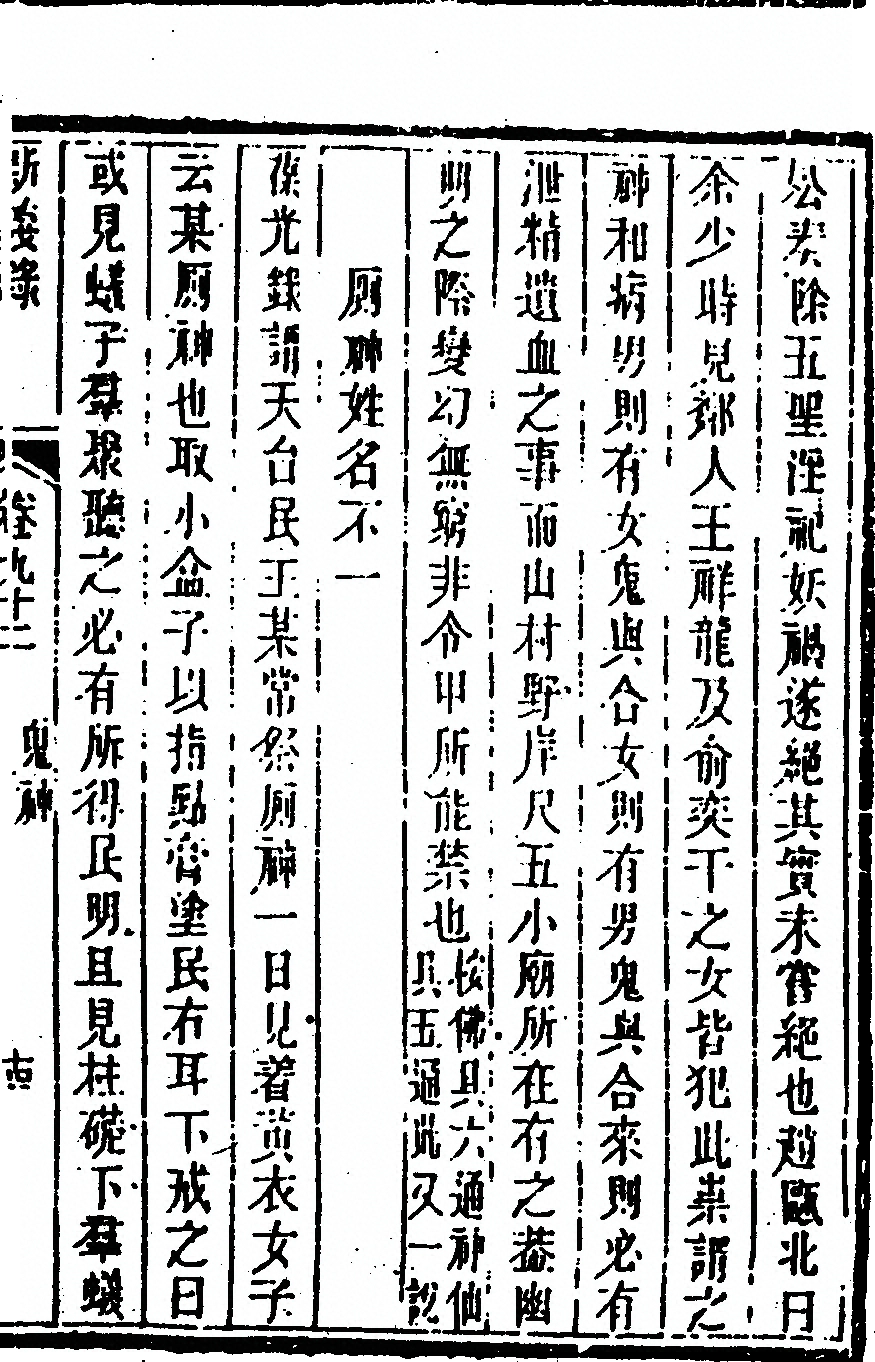 公奏除五聖淫祀妖禍遂絕其實未嘗絕也趙甌北曰
余少時見鄰人王祥龍及俞奕干之女皆犯此祟謂之
神和病男則有女鬼與合女則有男鬼與合來則必有
泄精遺血之事而山村野岸尺五小廟所在有之蓋幽
明之際變幻無窮非令甲所能禁也按佛具六通神仙
具五通此又一說
廁神姓名不一
葆光錄謂天台民王某常祭廁神一日見着黃衣女子
云某廁神也取小盆子以指點膏塗民右耳下戒之曰
或見蟻子羣聚聽之必有所得民明旦見柱礎下羣蟻
卷九十二
鬼神